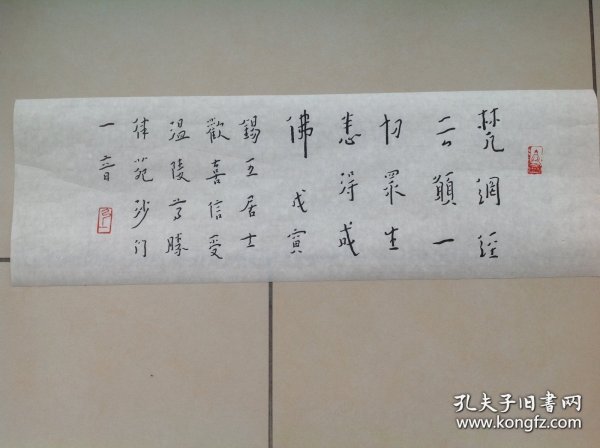 梵网經
云願一
切眾生
悉得成
佛戊寅
錫五居士
歡喜信受
温陵尊勝
律苑沙门
一音
孔夫子旧书网
www.kongfz.com